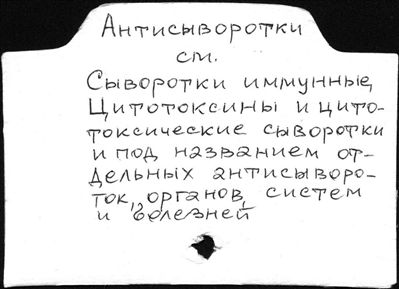 Антисыворотки
см.
Сыворотки иммунные,
Цитотоксины и цито-
токсические сыворотки
и под названием от-
дельных антисыворо-
ток, органов, систем
и болезней